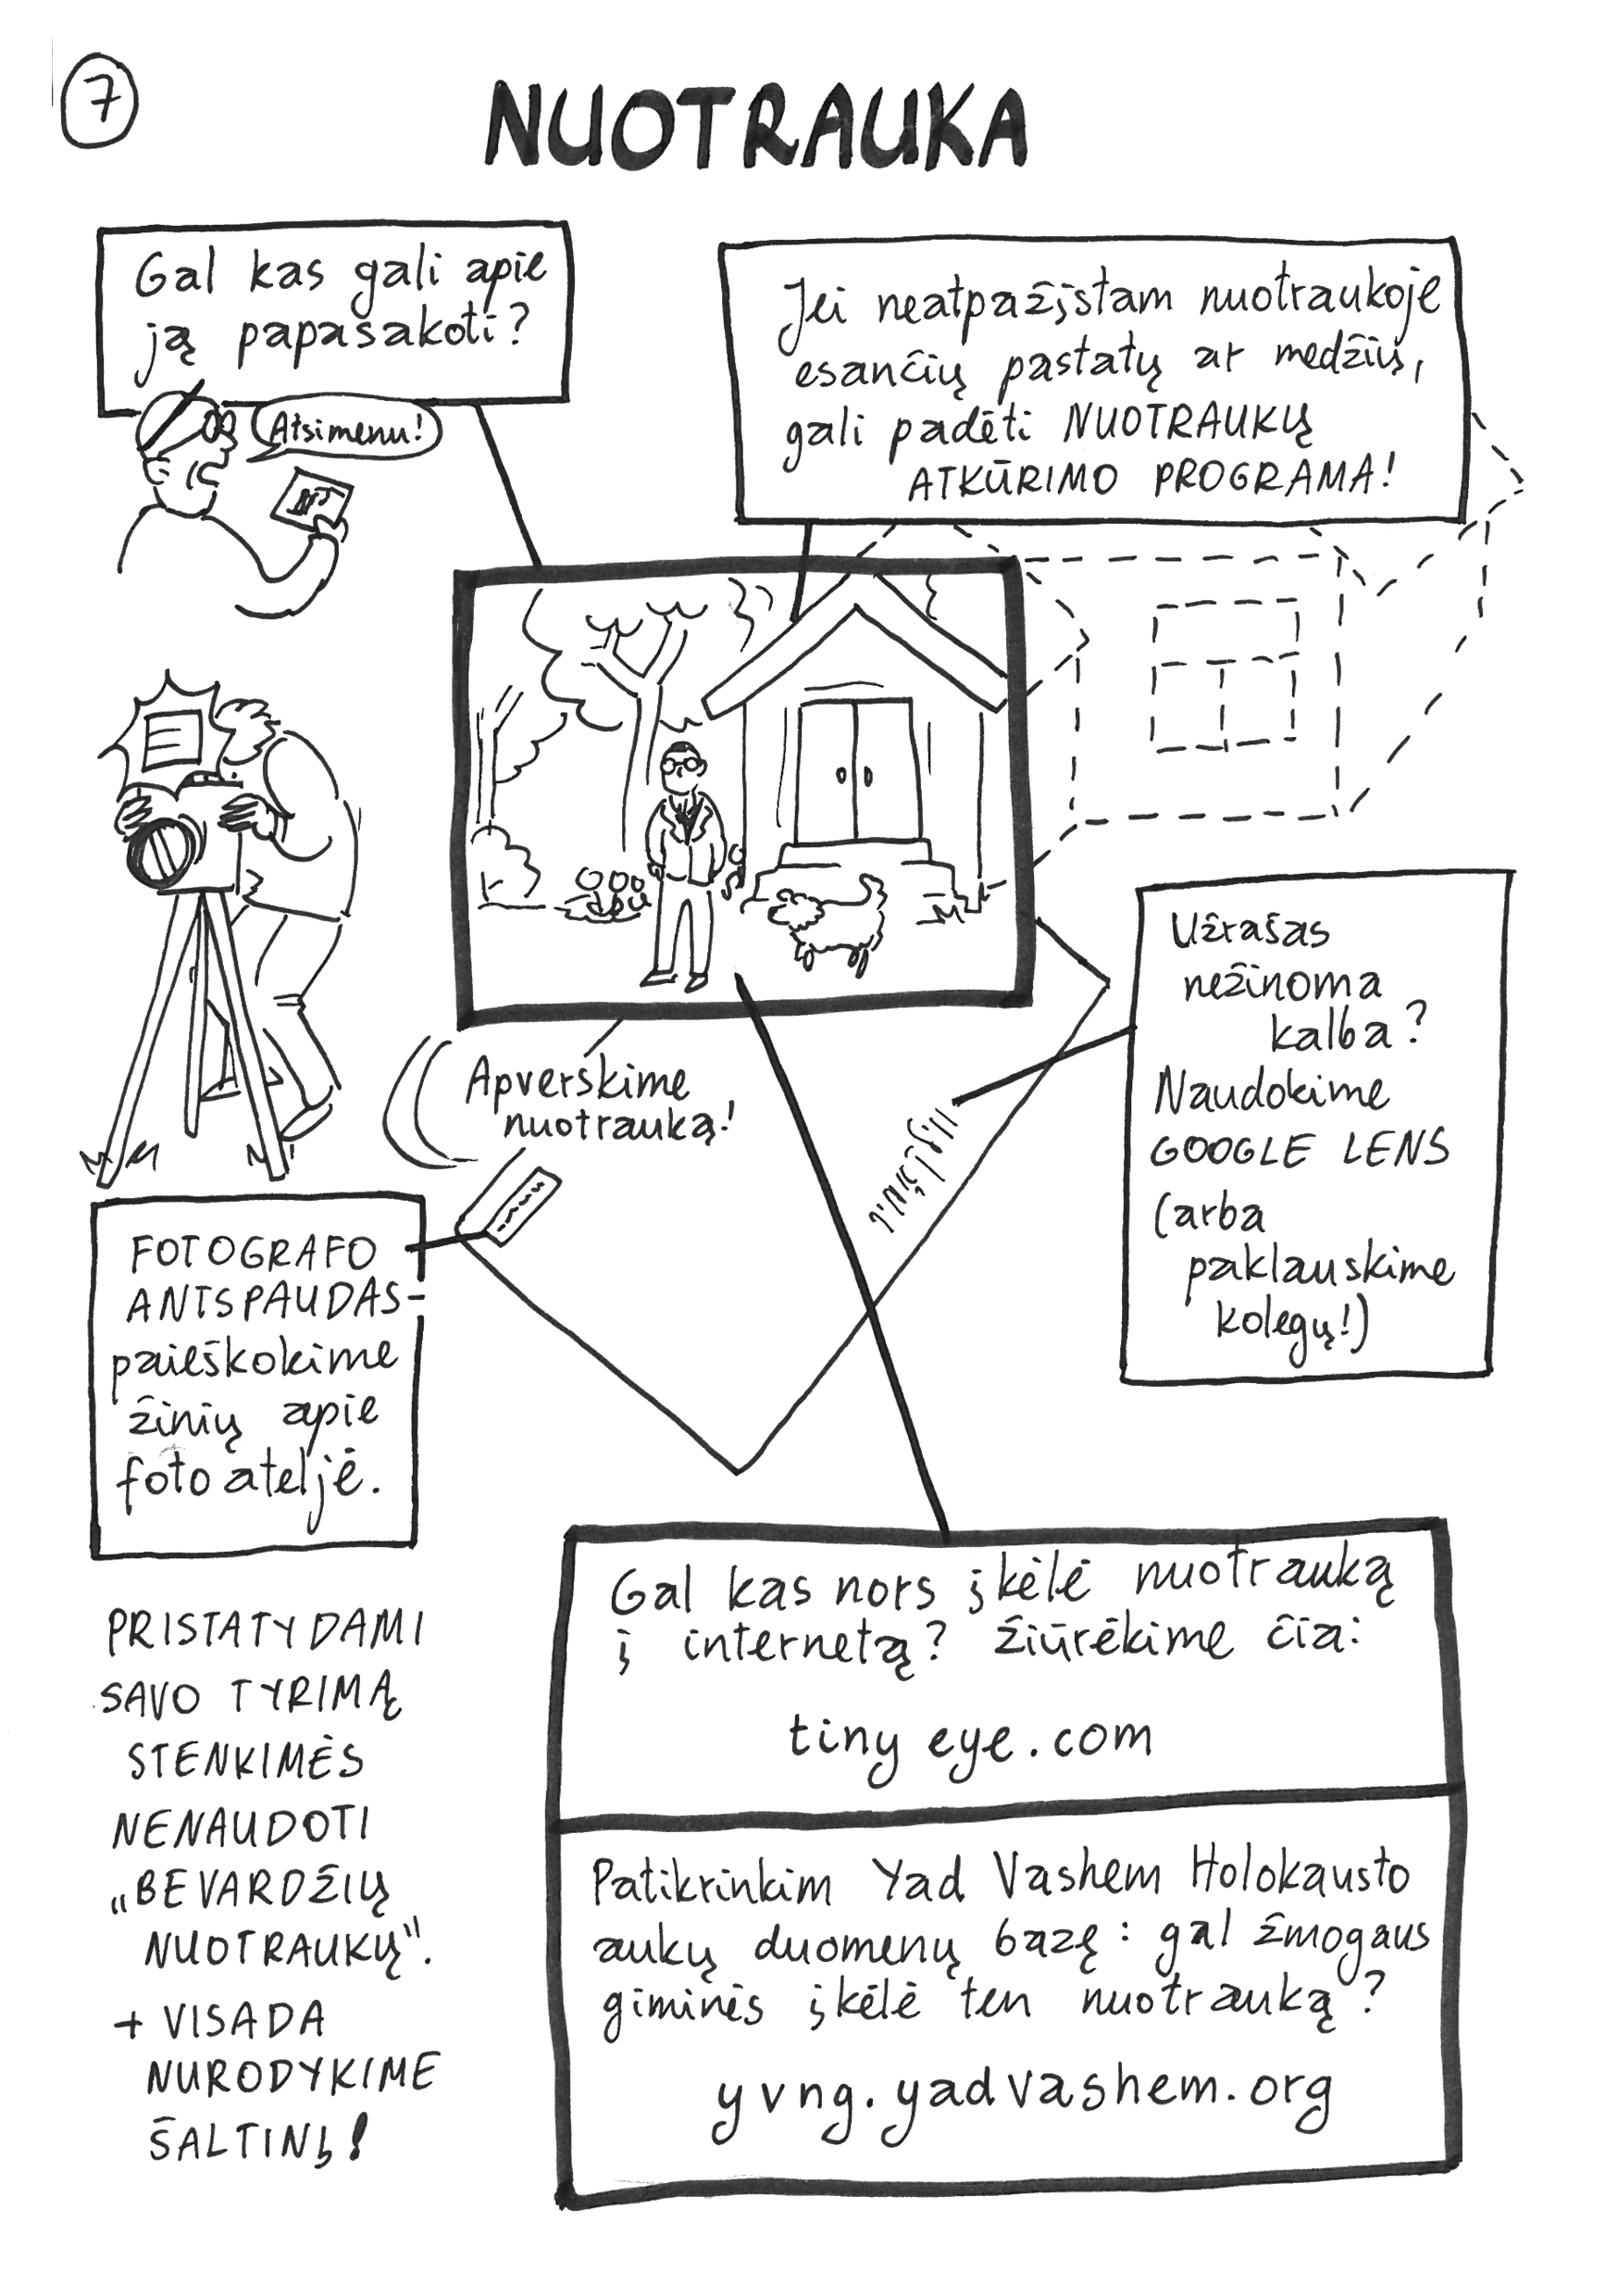 7
NUOTRAUKA
Gal kas gali apie
ją papasakoti?
Atsimenu!
Jei neatpažįstam nuotraukoje
esančių pastatų ar medžių,
gali padėti NUOTRAUKŲ
ATKŪRIMO PROGRAMA!
Apverskime
nuotrauką!
Užrašas
nežinoma
kalba?
Naudokime
GOOGLE LENS
(arba
paklauskime
kolegų!)
FOTOGRAFO
ANTSPAUDAS-
paieškokime
žinių apie
foto ateljė.
PRISTATYDAMI
SAVO TYRIMĄ
STENKIMĖS
NENAUDOTI
„BEVARDŽIŲ
NUOTRAUKŲ".
+ VISADA
NURODYKIME
ŠALTINĮ!
Gal kas nors įkėlė nuotrauką
į internetą? žiūrėkime čia:
tiny eye.com
Patikrinkim Yad Vashem Holokausto
aukų duomenų bazę: gal žmogaus
giminės įkėlė ten nuotrauką?
yvng.yadvashem.org